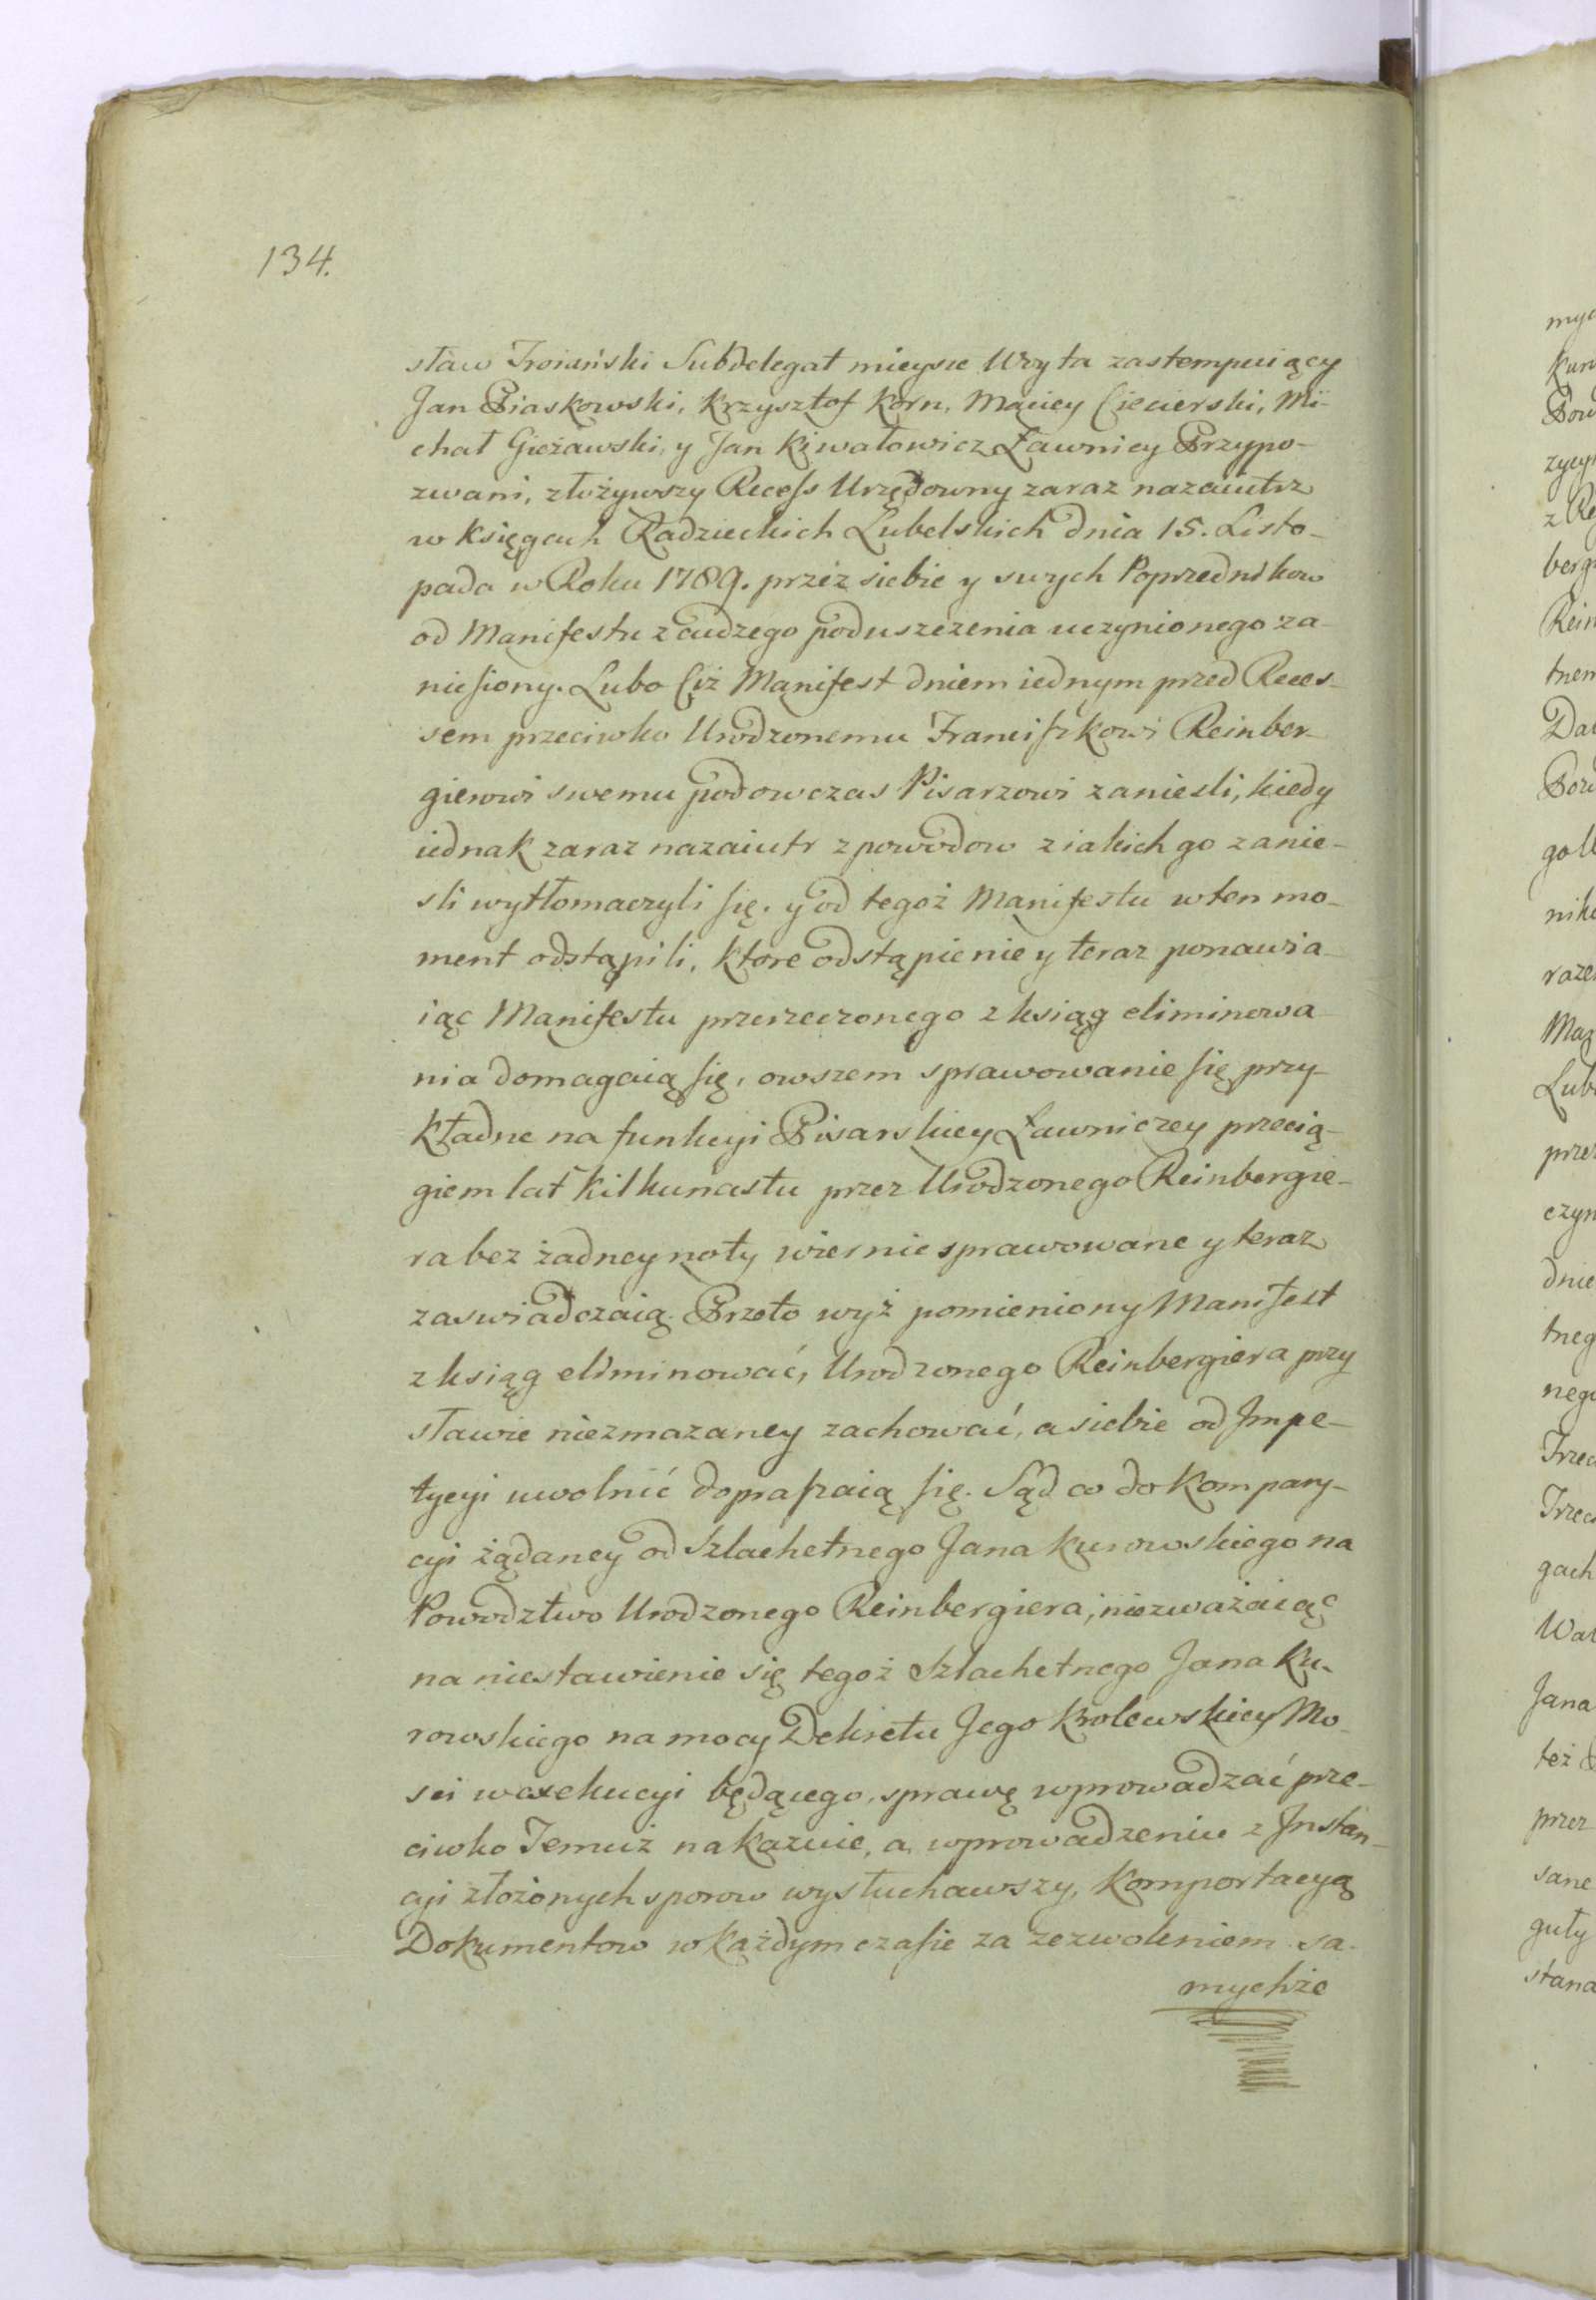 134.
sław Troiański Subdelegat mieysce Wóyta zastempuiący
Jan Piaskowski, Krzysztof Korn, Maciey Ciecierski, Mi-
chał Gieżawski, y Jan Kiwałowicz Ławnicy Przypo-
zwani, złożywszy Recess Urzędowny zaraz nazaiutrz
w Księgach Radzieckich Lubelskich dnia 15. Listo-
pada w Roku 1789. przez siebie y swych Poprzednikow
od Manifestu z cudzego poduszczenia uczynionego za-
niesiony. Lubo Ciż Manifest dniem iednym przed Reces-
sem przeciwko Urodzonemu Franciszkowi Reinber-
gierowi swemu podowczas Pisarzowi zaniesli, kiedy
iednak zaraz nazaiutr z powodow z iakich go zanie-
sli wytłomaczyli się. y od tegoż Manifestu w ten mo-
ment odstąpili, ktore odstąpienie y teraz ponawia-
iąc Manifestu przerzeczonego z ksiąg eliminowa-
nia domagaią się, owszem sprawowanie się przy-
kładne na funkcyi Pisarskiey Ławniczey przecią-
giem lat kilkunastu przez Urodzonego Reinbergie-
ra bez żadney noty wiernie sprawowane y teraz
zaswiadczaią. Przeto wyż pomieniony Manifest
z ksiąg eliminować, Urodzonego Reinbergiera przy
sławie niezmazaney zachować, a siebie od Impe-
tycyi uwolnić dopraszaią się. Sąd co do Kompary-
cyi żądaney od Szlachetnego Jana Kurowskiego na
Powodztwo Urodzonego Reinbergiera, niezważaiąc
na niestawienie się tegoż Szlachetnego Jana Ku-
rowskiego na mocy Dekretu Jego Krolewskiey Mo-
sci w exekucyi będącego, sprawę wprowadzać prze-
ciwko Temuż nakazuie, a wprowadzeniu z Instan-
cyi złożonych sporow wysłuchawszy, Komportacyą
Dokumentow w każdym czasie za zezwoleniem sa-
mychże